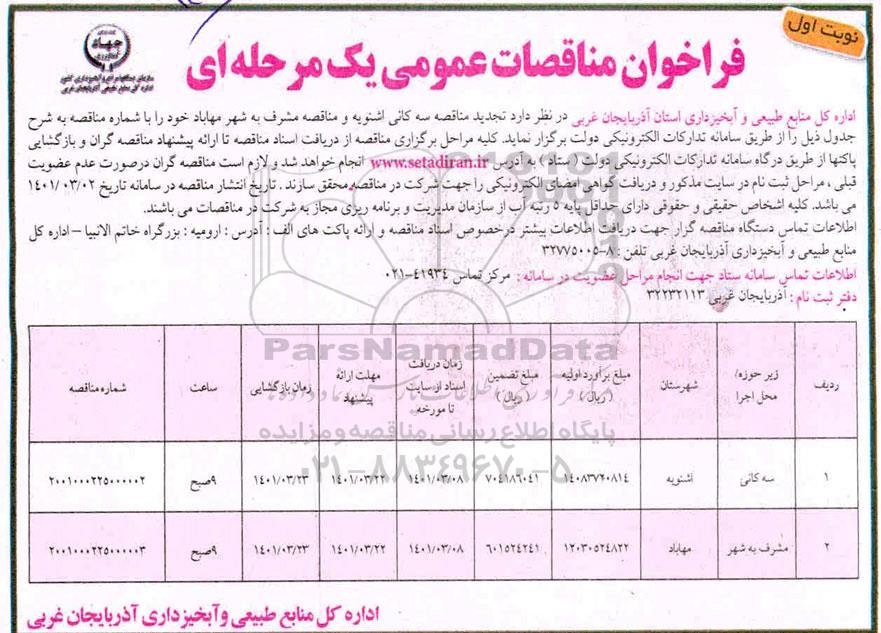 نوبت اول
فراخوان مناقصات عمومی یک مرحله ای
جهاد
سازمان جنگلها مراتع و آبخیزداری کشور
اداره کل منابع طبیعی آذربایجان غربی
اداره کل منابع طبیعی و آبخیزداری استان آذربایجان غربی در نظر دارد تجدید مناقصه سه کانی اشنویه و مناقصه مشرف به شهر مهاباد خود را با شماره مناقصه به شرح
جدول ذیل را از طریق سامانه تدارکات الکترونیکی دولت برگزار نماید. کلیه مراحل برگزاری مناقصه از دریافت اسناد مناقصه تا ارائه پیشنهاد مناقصه گران و بازگشایی
پاکتها از طریق درگاه سامانه تدارکات الکترونیکی دولت ( ستاد ) به آدرس www.setadiran.ir انجام خواهد شد و لازم است مناقصه گران درصورت عدم عضویت
قبلی ، مراحل ثبت نام در سایت مذکور و دریافت گواهی امضای الکترونیکی را جهت شرکت در مناقصه محقق سازند . تاریخ انتشار مناقصه در سامانه تاریخ ۱۴۰۱/۰۳/۰۲
می باشد. کلیه اشخاص حقیقی و حقوقی دارای حداقل پایه ۵ رتبه آب از سازمان مدیریت و برنامه ریزی مجاز به شرکت در مناقصات می باشند.
اطلاعات تماس دستگاه مناقصه گزار جهت دریافت اطلاعات بیشتر درخصوص اسناد مناقصه و ارائه پاکت های الف : آدرس : ارومیه : بزرگراه خاتم الانبیا – اداره کل
منابع طبیعی و آبخیزداری آذربایجان غربی تلفن : ۸-۳۲۷۷۵۰۰۵
اطلاعات تماس سامانه ستاد جهت انجام مراحل عضویت در سامانه : مرکز تماس ۴۱۹۳۴-۰۲۱
دفتر ثبت نام : آذربایجان غربی ۳۲۲۳۲۱۱۳
ردیف زیر حوزه/ محل اجرا شهرستان مبلغ برآورد اولیه ( ریال) مبلغ تضمین ( ریال) زمان دریافت اسناد از سایت تا مورخه مهلت ارائه پیشنهاد زمان بازگشایی ساعت شماره مناقصه
۱ سه کانی اشنویه ۱۴۰۸۳۷۲۰۸۱۴ ۷۰۴۱۸۶۰۴۱ ۱۴۰۱/۰۳/۰۸ ۱۴۰۱/۰۳/۲۲ ۱۴۰۱/۰۳/۲۳ ۹صبح ۲۰۰۱۰۰۰۲۲۵۰۰۰۰۰۲
۲ مشرف به شهر مهاباد ۱۲۰۳۰۵۲۴۸۲۲ ۶۰۱۵۲۴۲۴۱ ۱۴۰۱/۰۳/۰۸ ۱۴۰۱/۰۳/۲۲ ۱۴۰۱/۰۳/۲۳ ۹صبح ۲۰۰۱۰۰۰۲۲۵۰۰۰۰۰۳
ParsNamadData
پایگاه اطلاع رسانی مناقصه و مزایده
۰۲۱-۸۸۳۴۹۶۷۰-۵
اداره کل منابع طبیعی وآبخیزداری آذربایجان غربی